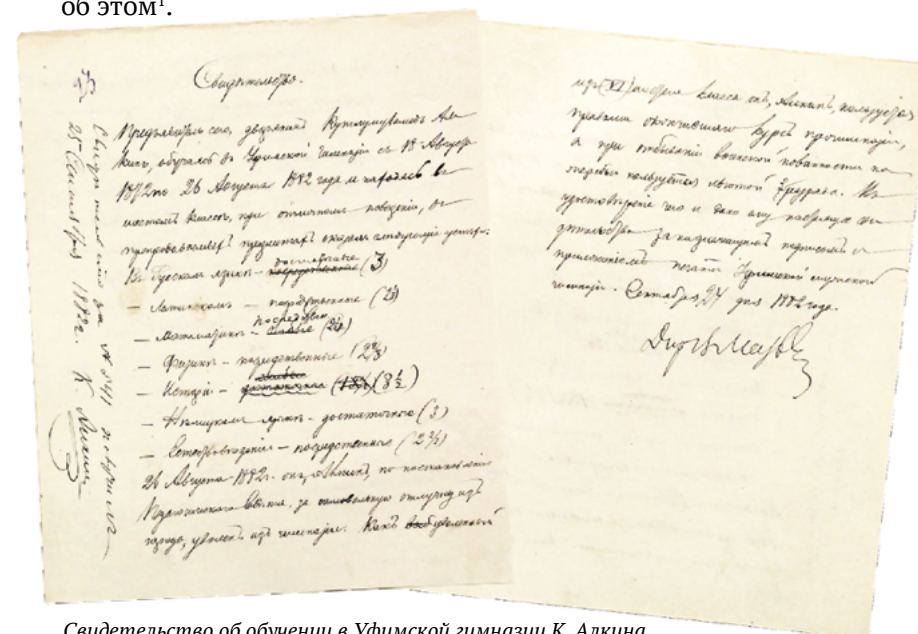 об этом¹.
Свидѣтельство.
Предъявитель сего, дворянинъ Кутлумухамедъ Ал-
кинъ, обучался въ Уфимской Гимназіи съ 18 Августа
1872 по 26 Августа 1882 года и находясь въ
шестомъ классѣ, при отличномъ поведеніи, въ
преподаваемыхъ предметахъ оказалъ слѣдующіе успѣхи:
Въ Русскомъ языкѣ – достаточные (3)
– Латинскомъ – посредственные
– Математикѣ – посредствен
– Физикѣ – посредственные (2⅔)
– Исторіи – (3½)
– Нѣмецкомъ языкѣ – достаточно (3)
– Естествовѣденіи – посредственные
26 Августа 1882 г. онъ, Алкинъ, по постановленію
Педагогическаго Совѣта, за самовольную отлучку изъ
города, уволенъ изъ гимназіи. Какъ уволенный
Свидѣтельство за № 541 получилъ
25 Сентября 1882 г. К. Алкинъ
изъ (VI) шестаго класса онъ, Алкинъ, пользуется
правами окончившаго курсъ прогимназіи,
а при отбываніи воинской повинности по
жеребью пользуется льготой 2 разряда. Въ
удостовѣреніе чего и дано ему настоящее сви-
дѣтельство за надлежащимъ подписомъ и
приложеніемъ печати Уфимской мужской
гимназіи. Сентября 27 дня 1882 года.
Свидетельство об обучении в Уфимской гимназии К. Алкина